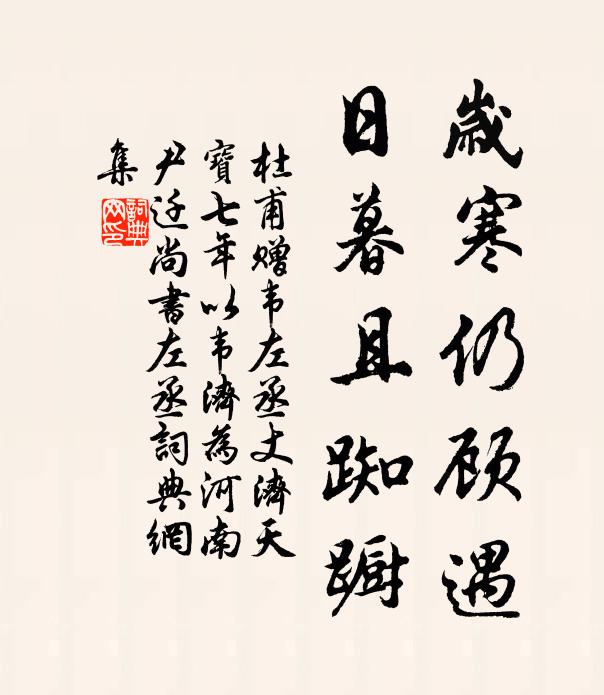 歲寒仍顾遇
日暮且踟蹰
杜甫赠韦左丞丈濟天
寶七年以韦濟為河南
尹迁尚書左丞詞典網
集
詞典
网印